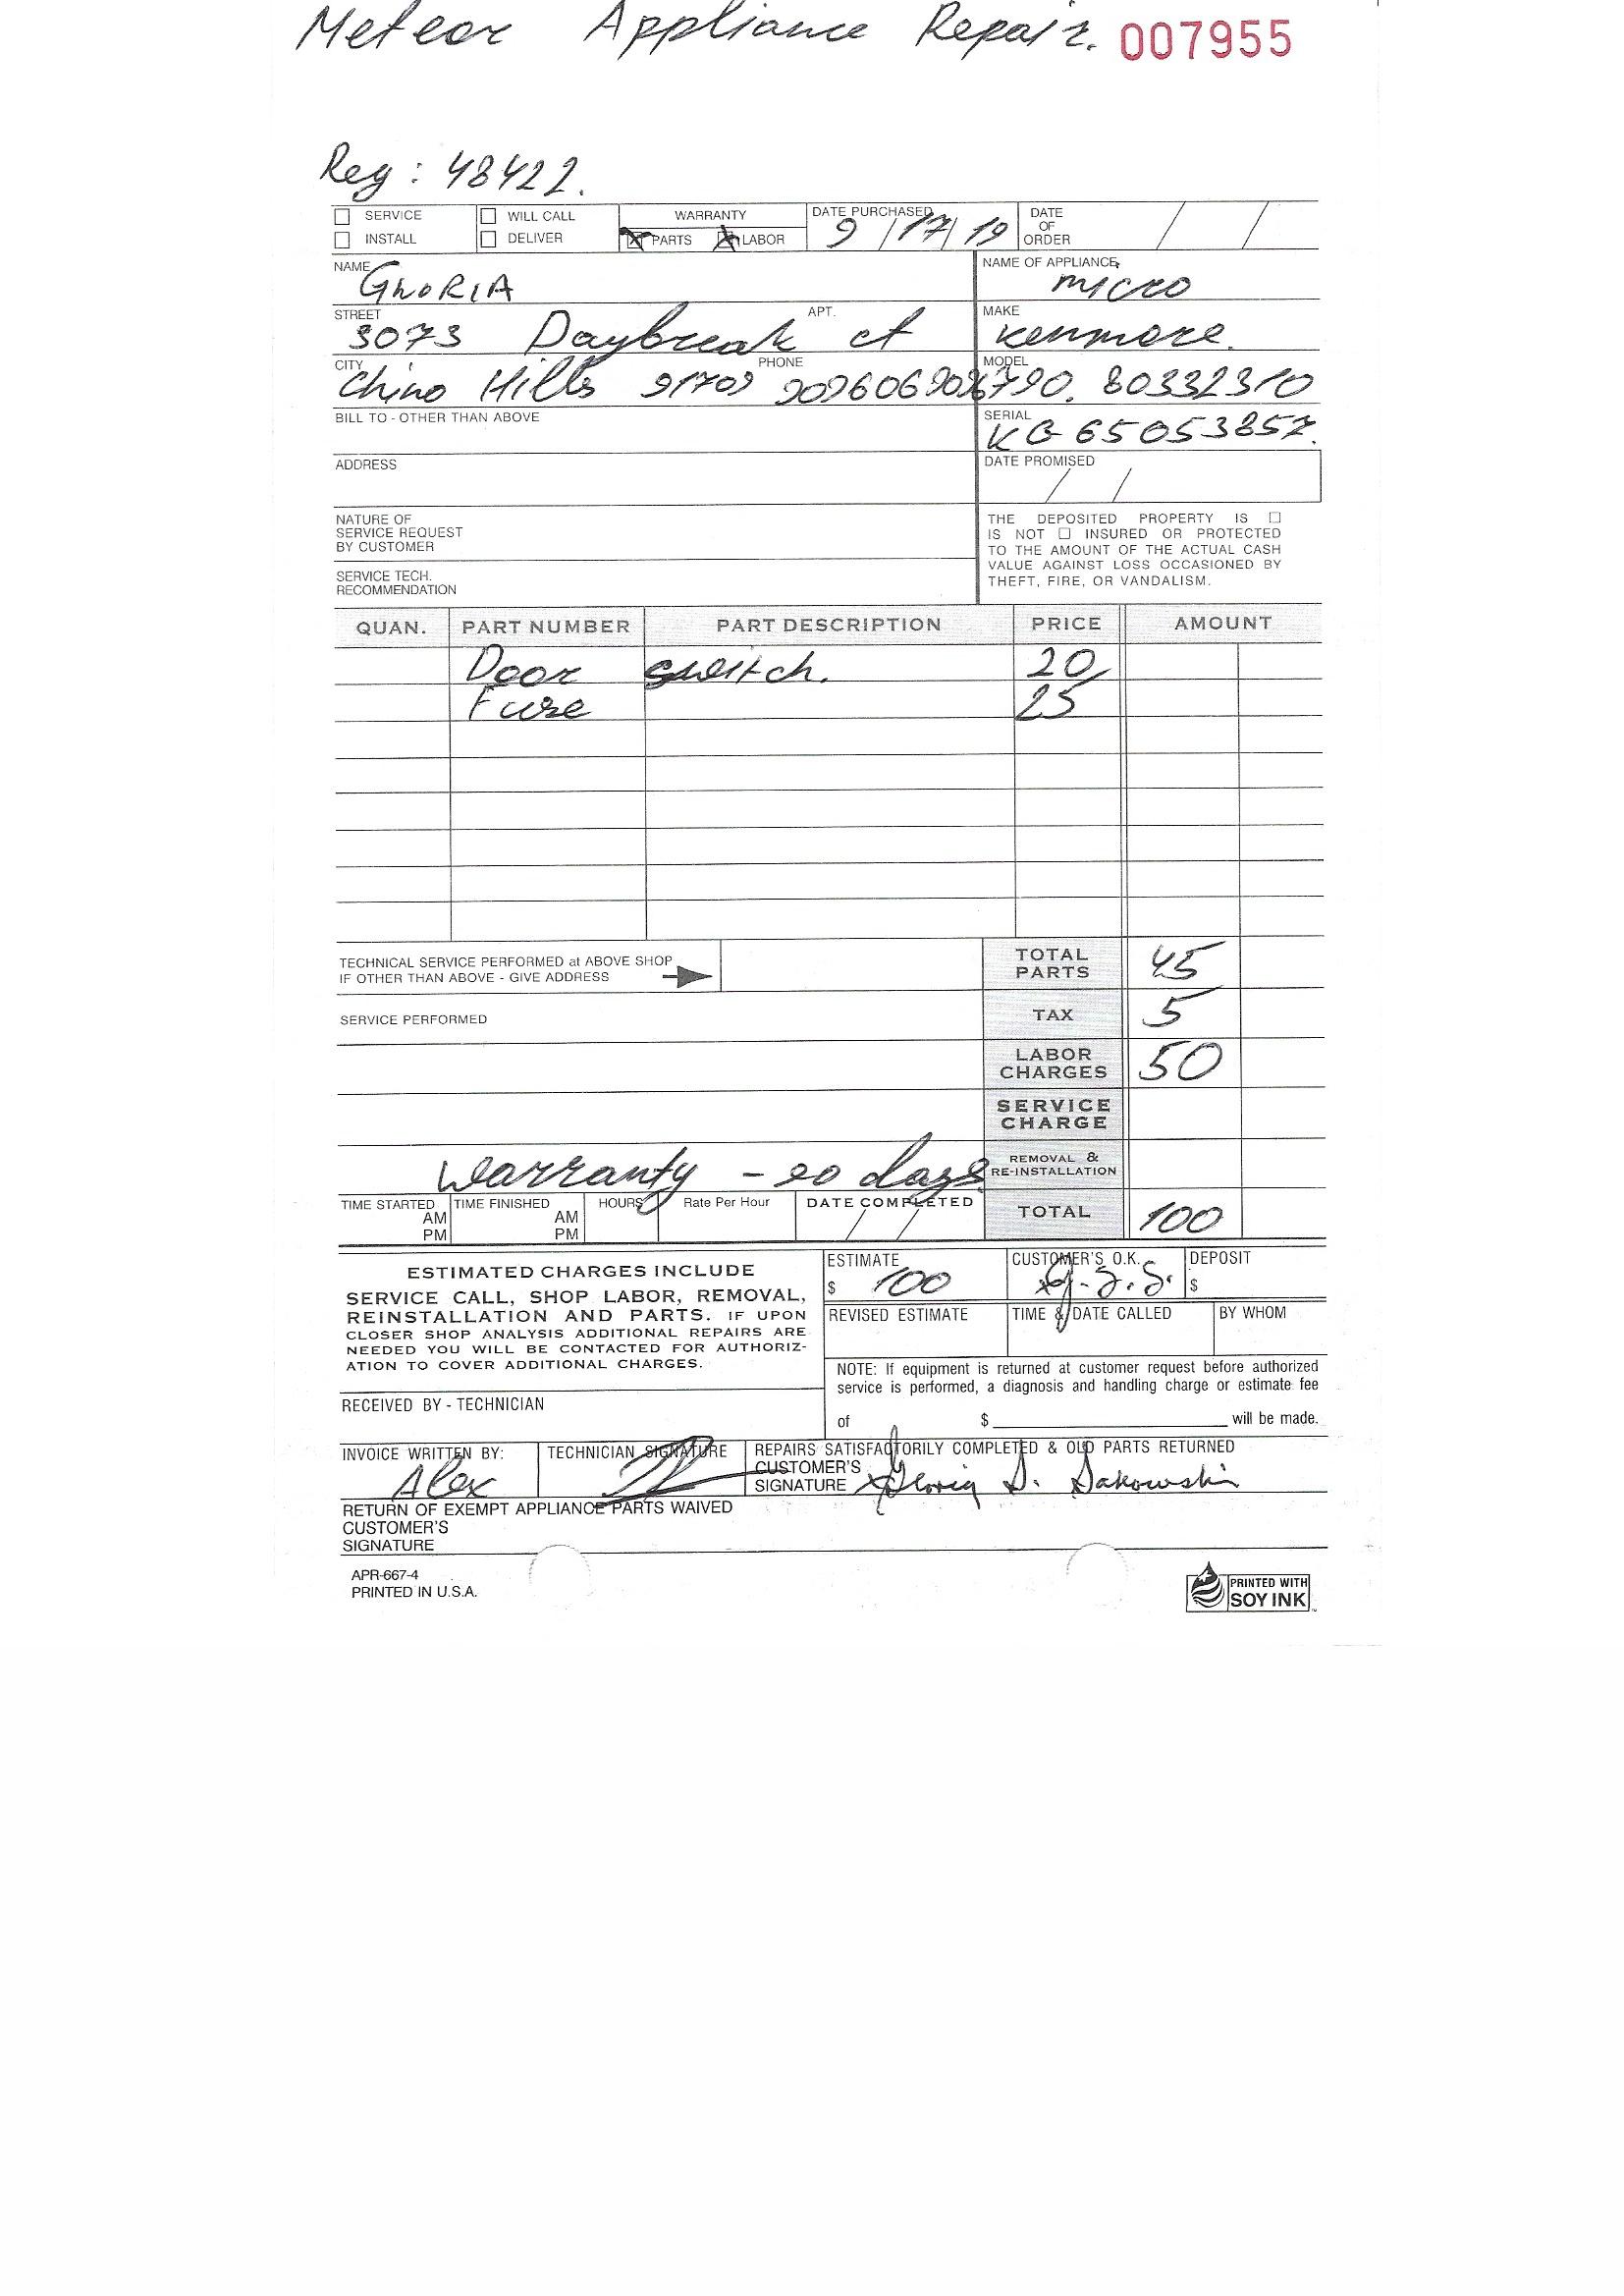 Meteor Appliance Repair. 007955
Reg: 48422.
SERVICE WILL CALL WARRANTY DATE PURCHASED 9/17/19 DATE OF ORDER / /
INSTALL DELIVER PARTS LABOR
NAME GLORIA NAME OF APPLIANCE micro
STREET 3073 Daybreak ct APT. MAKE Kenmore.
CITY Chino Hills 91709 PHONE MODEL 790. 80332310
BILL TO - OTHER THAN ABOVE SERIAL KG 65053857.
ADDRESS DATE PROMISED / /
NATURE OF
SERVICE REQUEST
BY CUSTOMER
SERVICE TECH.
RECOMMENDATION
THE DEPOSITED PROPERTY IS ☐
IS NOT ☐ INSURED OR PROTECTED
TO THE AMOUNT OF THE ACTUAL CASH
VALUE AGAINST LOSS OCCASIONED BY
THEFT, FIRE, OR VANDALISM.
QUAN. PART NUMBER PART DESCRIPTION PRICE AMOUNT
Door switch. 20
Fuse 25
TECHNICAL SERVICE PERFORMED at ABOVE SHOP
IF OTHER THAN ABOVE - GIVE ADDRESS
TOTAL PARTS 45
SERVICE PERFORMED TAX 5
LABOR CHARGES 50
SERVICE CHARGE
warranty - 90 days REMOVAL & RE-INSTALLATION
TIME STARTED AM PM TIME FINISHED AM PM HOURS Rate Per Hour DATE COMPLETED / / TOTAL 100
ESTIMATED CHARGES INCLUDE
SERVICE CALL, SHOP LABOR, REMOVAL,
REINSTALLATION AND PARTS. IF UPON
CLOSER SHOP ANALYSIS ADDITIONAL REPAIRS ARE
NEEDED YOU WILL BE CONTACTED FOR AUTHORIZ-
ATION TO COVER ADDITIONAL CHARGES.
ESTIMATE $ 100 CUSTOMER'S O.K. DEPOSIT $
REVISED ESTIMATE TIME & DATE CALLED BY WHOM
NOTE: If equipment is returned at customer request before authorized
service is performed, a diagnosis and handling charge or estimate fee
of $ will be made.
RECEIVED BY - TECHNICIAN
INVOICE WRITTEN BY: Alex TECHNICIAN SIGNATURE
REPAIRS SATISFACTORILY COMPLETED & OLD PARTS RETURNED
CUSTOMER'S
SIGNATURE x Gloria S. Sakowski
RETURN OF EXEMPT APPLIANCE PARTS WAIVED
CUSTOMER'S
SIGNATURE
APR-667-4
PRINTED IN U.S.A.
PRINTED WITH
SOY INK